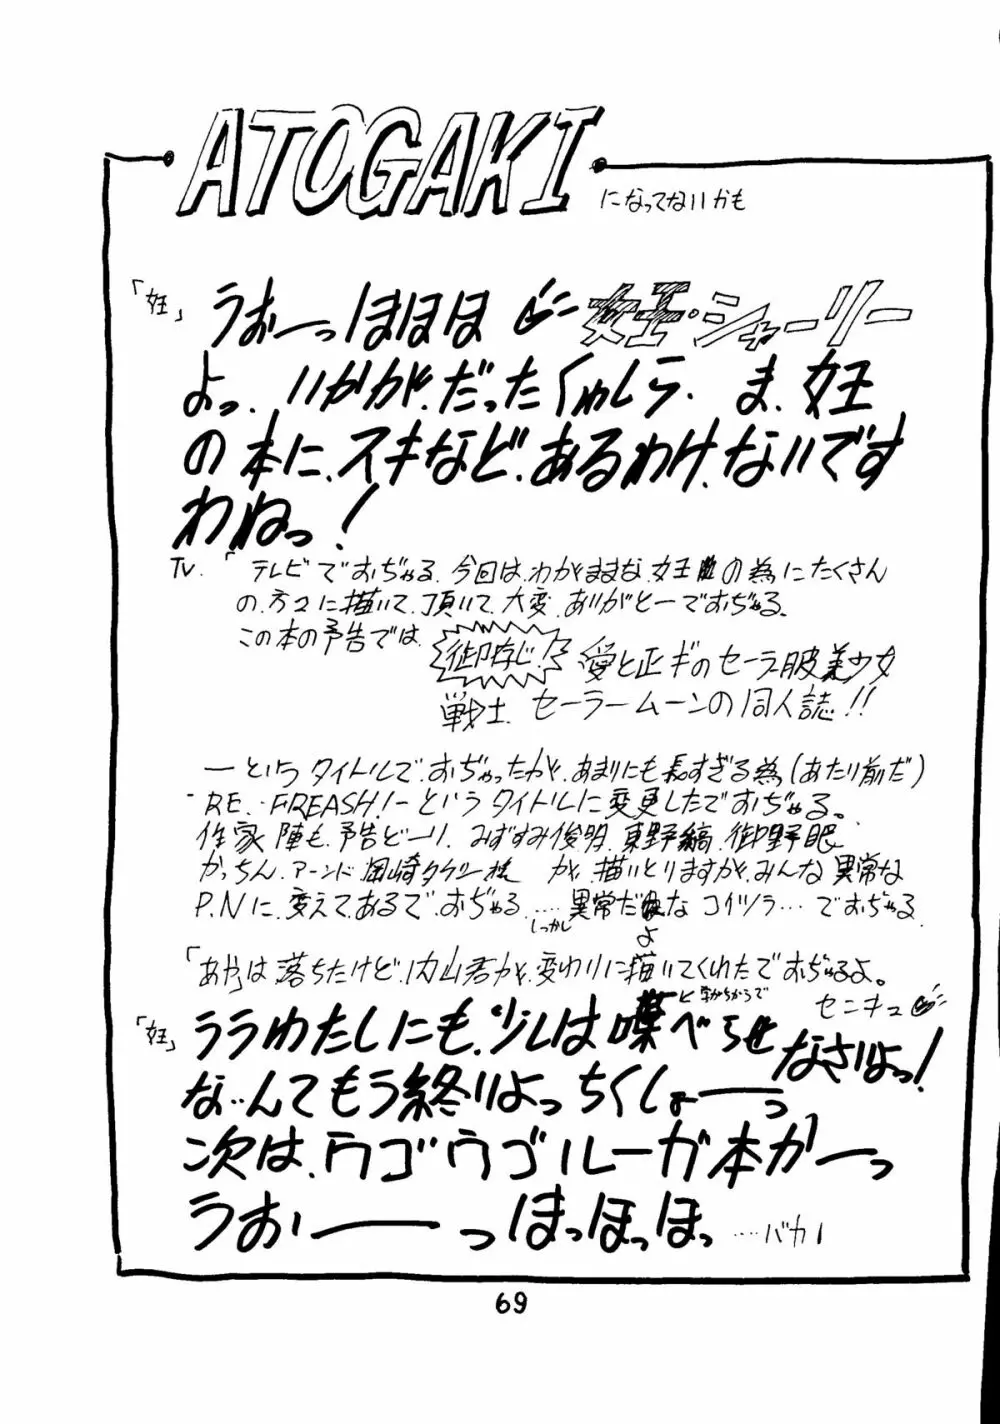 ATOGAKI
になってないかも
「女王」
うおーっほほほ 女王・シャーリー
よっ.いかが.だったくゎしら. ま.女王
の本に.スキなど.あるわけ.ないです
わねっ!
TV.「テレビでおぢゃる.今回は.わがままな.女王の為にたくさん
の.方々に描いて.頂いて.大変.ありがとーでおぢゃる。
この本の予告では.
御存じ! 愛と正ギのセーラー服美少女
戦士.セーラームーンの同人誌!!
ーというタイトルで.おぢゃったが.あまりにも長すぎる為(あたり前だ)
RE.-FREASH!-というタイトルに変更したでおぢゃる。
作家陣も.予告どーり.みずすみ俊明.東野縞.御野眼
かっちん.アーンド岡崎タケシ様 が.描いとりますが.みんな異常な
P.Nに.変えてあるで.おぢゃる....異常だよなコイツラ...でおぢゃる
しっかし
「あやは落ちたけど.内山君が.変わりに描いてくれたでおぢゃるよ。
「女王」
ララわたしにも.少しは喋べらせなさいよっ!
セニキュ
な..んてもう終りよっちくしょーーっ
次は.ウゴウゴルーガ本かーっ
うおぃーーっほっほっほっ ....バカ!
69